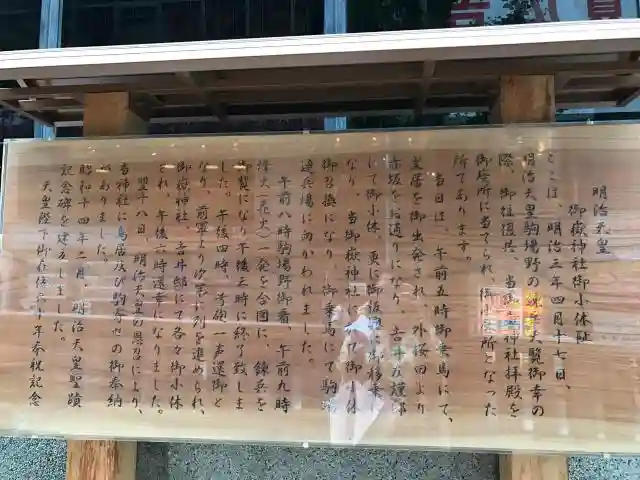 明治天皇
御嶽神社御小休趾
ここは、明治三年四月十七日、
明治天皇駒場野の 天覧御幸の
際、御往還共 当御 神社拝殿を
御座所に当てられ、御小 所となった
所であります。
当日は、午前五時御乗馬にて、
皇居を御出発され、外桜田より
赤坂をお通りになり、
いて御小休、更に御板輿 御移乗
なり、当御嶽神社 て御小休、
御召換になり、御乗馬にて駒場
練兵場に向かわれました。
午前八時駒場野御着、午前九時
烽火(花火)一発を合図に、錬兵を
天覧になり午後三時に終了致しま
した。午後四時、号砲一声還御と
なり、前軍より次第に列を進められ、
御嶽神社、吉井邸にて各々御小休
され、午後六時還幸になりました。
翌十八日、明治天皇の思召により、
当神社に鳥居及び駒寄せの御奉納
がありました。
昭和十四年二月、明治天皇聖蹟
記念碑を建立しました。
天皇陛下御在位六十年奉祝記念